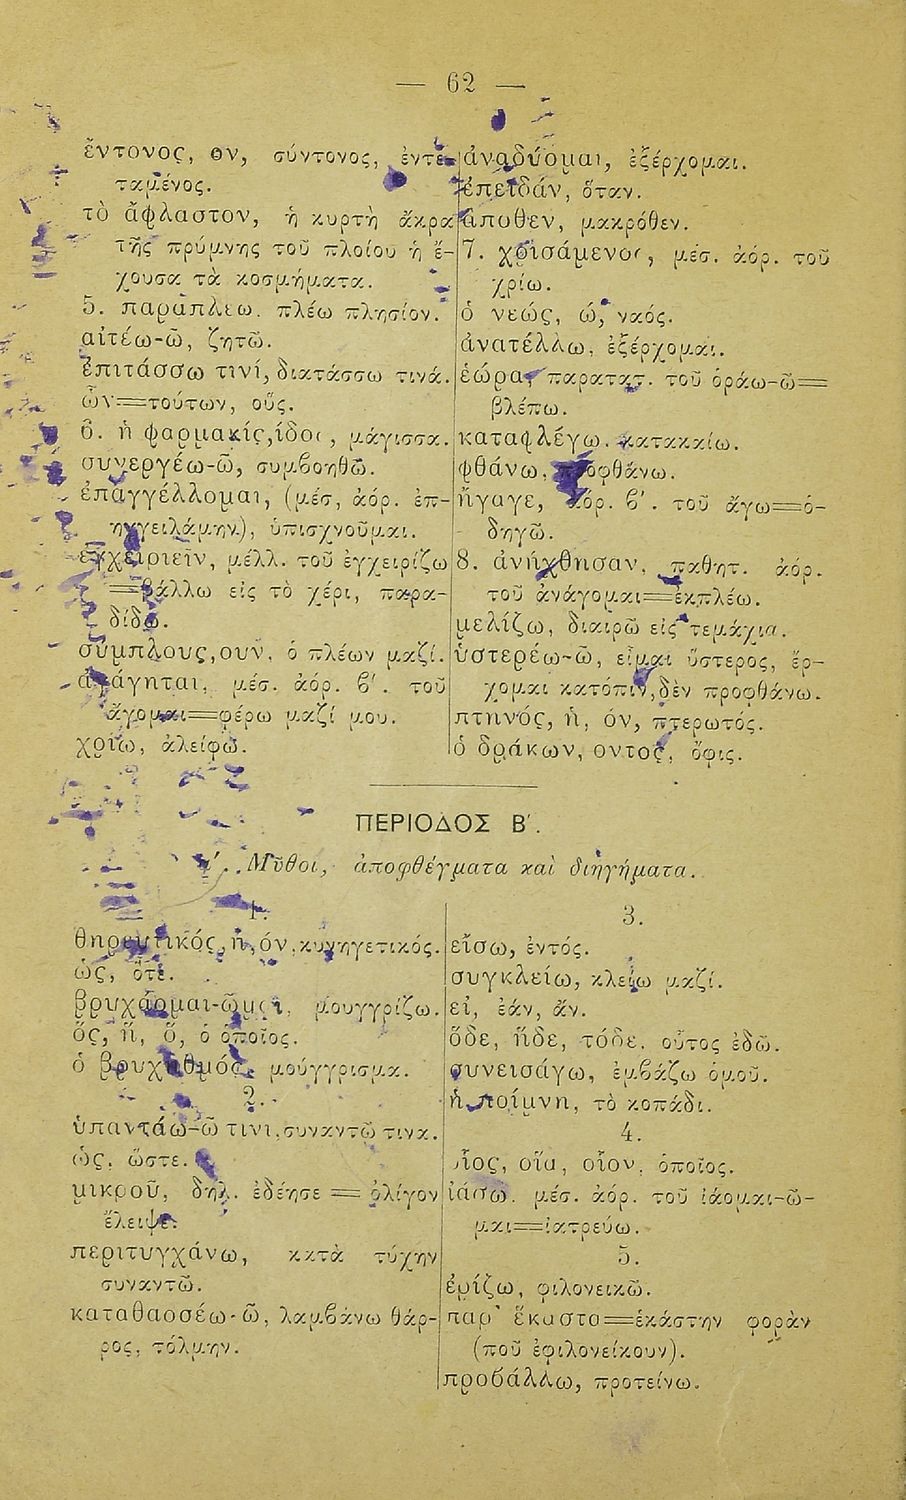 — 62 —
ἔντονος, ον, σύντονος, ἐντε-
ταμένος.
τὸ ἄφλαστον, ἡ κυρτὴ ἄκρα
τῆς πρύμνης τοῦ πλοίου ἡ ἔ-
χουσα τὰ κοσμήματα.
5. παραπλέω. πλέω πλησίον.
αἰτέω-ῶ, ζητῶ.
ἐπιτάσσω τινί, διατάσσω τινά.
ὧν=τούτων, οὕς.
6. ἡ φαρμακίς, ίδος, μάγισσα.
συνεργέω-ῶ, συμβοηθῶ.
ἐπαγγέλλομαι, (μέσ, ἀόρ. ἐπ-
ηγγειλάμην), ὑπισχνοῦμαι.
ἐγχειριεῖν, μέλλ. τοῦ ἐγχειρίζω
=βάλλω εἰς τὸ χέρι, παρα-
δίδω.
σύμπλους, ουν, ὁ πλέων μαζί.
ἀγάγηται, μέσ. ἀόρ. β΄. τοῦ
ἄγομαι=φέρω μαζί μου.
χρίω, ἀλείφω.
ἀναδύομαι, ἐξέρχομαι.
ἐπειδάν, ὅταν.
ἄποθεν, μακρόθεν.
7. χρισάμενος, μέσ. ἀόρ. τοῦ
χρίω.
ὁ νεώς, ώ, ναός.
ἀνατέλλω, ἐξέρχομαι.
ἑώρα, παρατατ. τοῦ ὁράω-ῶ=
βλέπω.
καταφλέγω. κατακαίω.
φθάνω, προφθάνω.
ἤγαγε, ἀόρ. β΄. τοῦ ἄγω=ὁ-
δηγῶ.
8. ἀνήχθησαν, παθητ. ἀόρ.
τοῦ ἀνάγομαι=ἐκπλέω.
μελίζω, διαιρῶ εἰς τεμάχια.
ὑστερέω-ῶ, εἶμαι ὕστερος, ἔρ-
χομαι κατόπιν, δὲν προφθάνω.
πτηνός, ή, όν, πτερωτός.
ὁ δράκων, οντος, ὄφις.
ΠΕΡΙΟΔΟΣ Β΄.
Μῦθοι, ἀποφθέγματα καὶ διηγήματα.
1.
θηρευτικός, ή, όν, κυνηγετικός.
ὡς, ὅτι.
βρυχάομαι-ῶμαι, μουγγρίζω.
ὅς, ἥ, ὅ, ὁ ὁποῖος.
ὁ βρυχηθμός, μούγγρισμα.
2.
ὑπαντάω-ῶ τινι, συναντῶ τινα.
ὡς, ὥστε.
μικροῦ, δηλ. ἐδέησε = ὀλίγον
ἔλειψε.
περιτυγχάνω, κατὰ τύχην
συναντῶ.
καταθαρσέω-ῶ, λαμβάνω θάρ-
ρος, τόλμην.
3.
εἴσω, ἐντός.
συγκλείω, κλείω μαζί.
εἰ, ἐάν, ἄν.
ὅδε, ἥδε, τόδε. οὗτος ἐδῶ.
συνεισάγω, ἐμβάζω ὁμοῦ.
ἡ ποίμνη, τὸ κοπάδι.
4.
οἷος, οἵα, οἷον, ὁποῖος.
ἰάσω. μέσ. ἀόρ. τοῦ ἰάομαι-ῶ-
μαι=ἰατρεύω.
5.
ἐρίζω, φιλονεικῶ.
παρ᾽ ἕκαστα=ἑκάστην φορὰν
(ποῦ ἐφιλονείκουν).
προβάλλω, προτείνω.